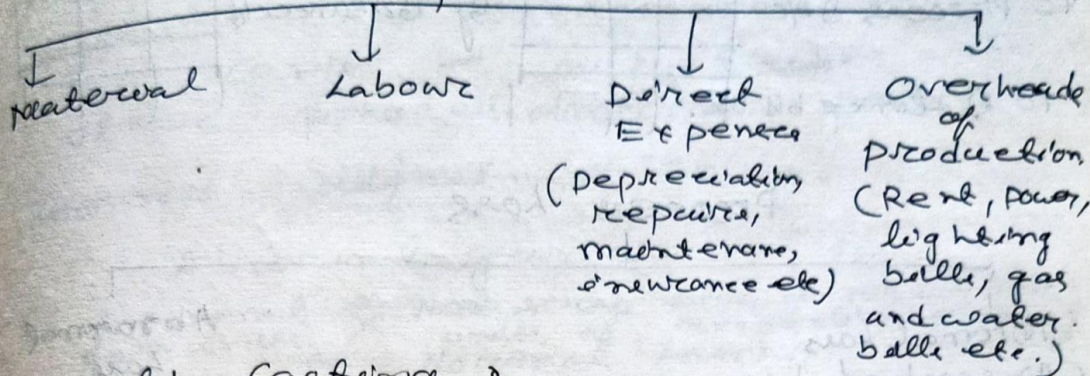 Material
Labour
Direct
Expenses
(Depreciation,
repairs,
maintenance,
insurance etc)
Overheads
of
production
(Rent, power,
lighting
bills, gas
and water
bills etc.)